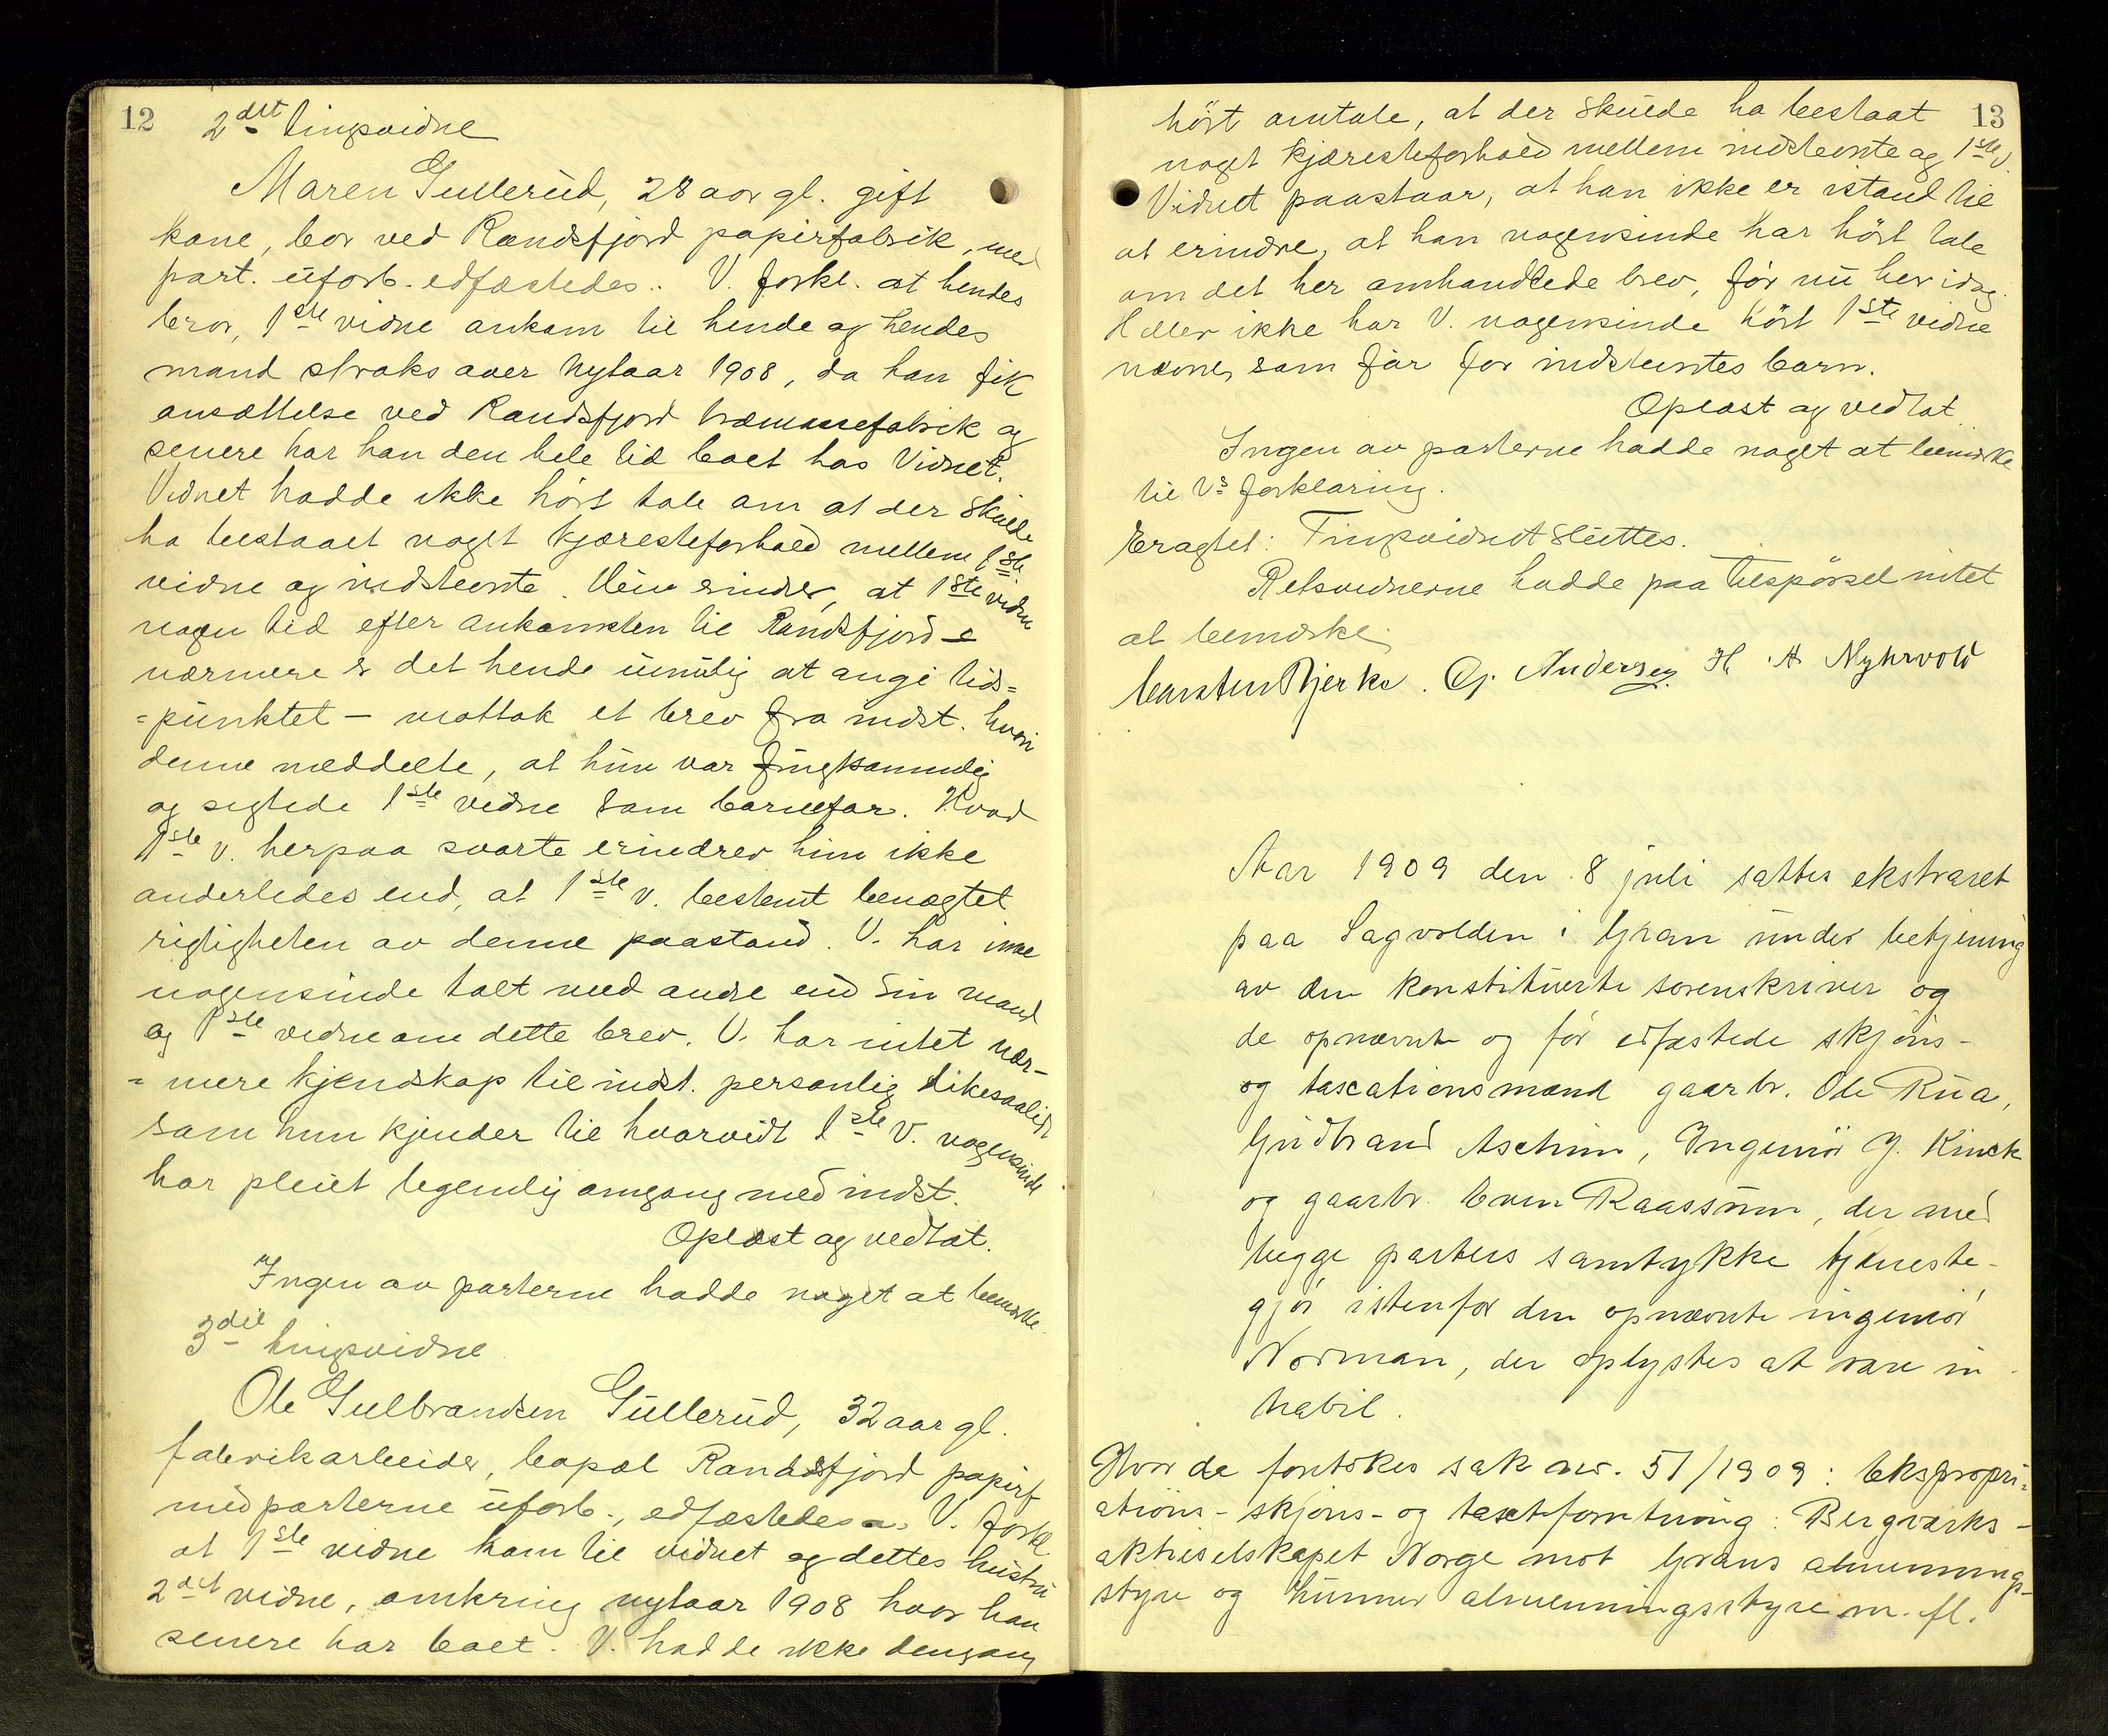 12
2det tingsvidne
Maren Gullerud, 28 aar gl. gift
kone, bor ved Randsfjord papirfabrik, med
part. uforb. edfæstedes. V. forkl. at hendes
bror, 1ste vidne ankom til hende og hendes
mand straks over nytaar 1908, da han fik
ansættelse ved Randsfjord træmassefabrik og
senere har han den hele tid boet hos Vidnet.
Vidnet hadde ikke hørt tale om at der skulde
ha bestaaet noget kjæresteforhold mellem 1ste
vidne og indstevnte. Hun erindrer, at 1ste vidne
nogen tid efter ankomsten til Randsfjord –
nærmere er det hende umulig at angi tids=
=punktet – mottok et brev fra indst. hvori
denne meddelte, at hun var frugtsommelig
og sigtede 1ste vidne som barnefar. Hvad
1ste v. herpaa svarte erindrer hun ikke
anderledes end, at 1ste v. bestemt benegtet
rigtigheten av denne paastand. V. har ikke
nogensinde talt med andre end sin mand
og 1ste vidne om dette brev. V. har intet nær-
=mere kjendskap til indst. personlig likesaalidt
som hun kjender til hvorvidt 1ste V. nogensinde
har pleiet legemlig omgang med indst.
Oplæst og vedtat.
Ingen av parterne hadde noget at bemerke.
3die tingsvidne
Ole Gulbrandsen Gullerud, 32 aar gl.
fabrikarbeider, bopæl Randsfjord papirf
med parterne uforb., edfæstedes. V. forkl.
at 1ste vidne kom til vidnet og dettes hustru
2det vidne, omkring nytaar 1908 hvor han
senere har boet. V. hadde ikke dengang
13
hørt omtale, at der skulde ha bestaat
noget kjæresteforhold mellem indstevnte og 1ste v.
Vidnet paastaar, at han ikke er istand til
at erindre, at han nogensinde har hørt tale
om det her omhandlede brev, før nu her idag.
Heller ikke har V. nogensinde hørt 1ste vidne
nævnes som far for indstevntes barn.
Oplæst og vedtat.
Ingen av parterne hadde noget at bemerke
til Vs forklaring.
Eragtet: Tingsvidnet sluttes.
Retsvidnerne hadde paa tilspørsel intet
at bemerke.
Carsten Bjerke. Og. Andersen H. A. Myhrvold
Aar 1909 den 8 juli sattes ekstraret
paa Sagvolden i Gran under betjening
av den konstituerte sorenskriver og
de opnævnte og før edfæstede skjøns-
og taxationsmænd gaarbr. Ole Rua,
Gudbrand Aschim, Ingeniør J. Kinck
og gaarbr. Even Raassum, der med
begge parters samtykke tjeneste-
gjør istenfor den opnævnte ingeniør
Norman, der oplystes at være in-
habil.
Hvor da foretokes sak nr. 51/1909: Ekspropri=
ations- skjøns- og taxtforretning: Bergverks-
aktieselskapet Norge mot Grans almennings-
styre og Lunner almenningsstyre m. fl.